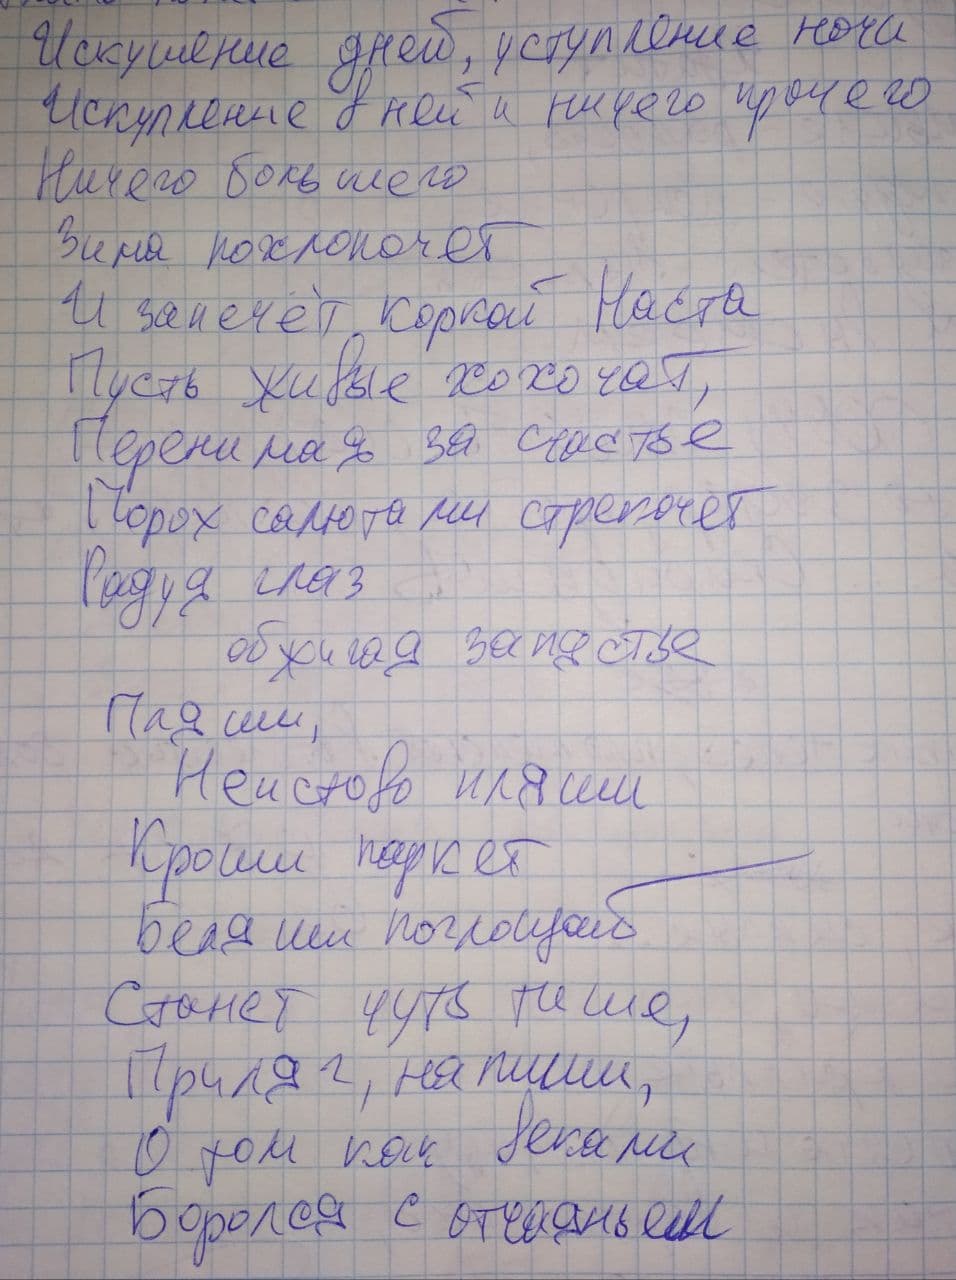 Искушение дней, уступление ночи
Искупление в ней и ничего прочего
Ничего большего
Зима похлопочет
И запечёт коркой Наста
Пусть живые хохочат,
Перенимая за счастье
Порох салютами стрекочет
Радуя глаз
обжигая запястье
Пляши,
Неистово пляши
Кроши паркет
Беляши поглощай
Станет чуть тише,
Приляг, напиши,
О том как веками
Боролся с отчаяньем